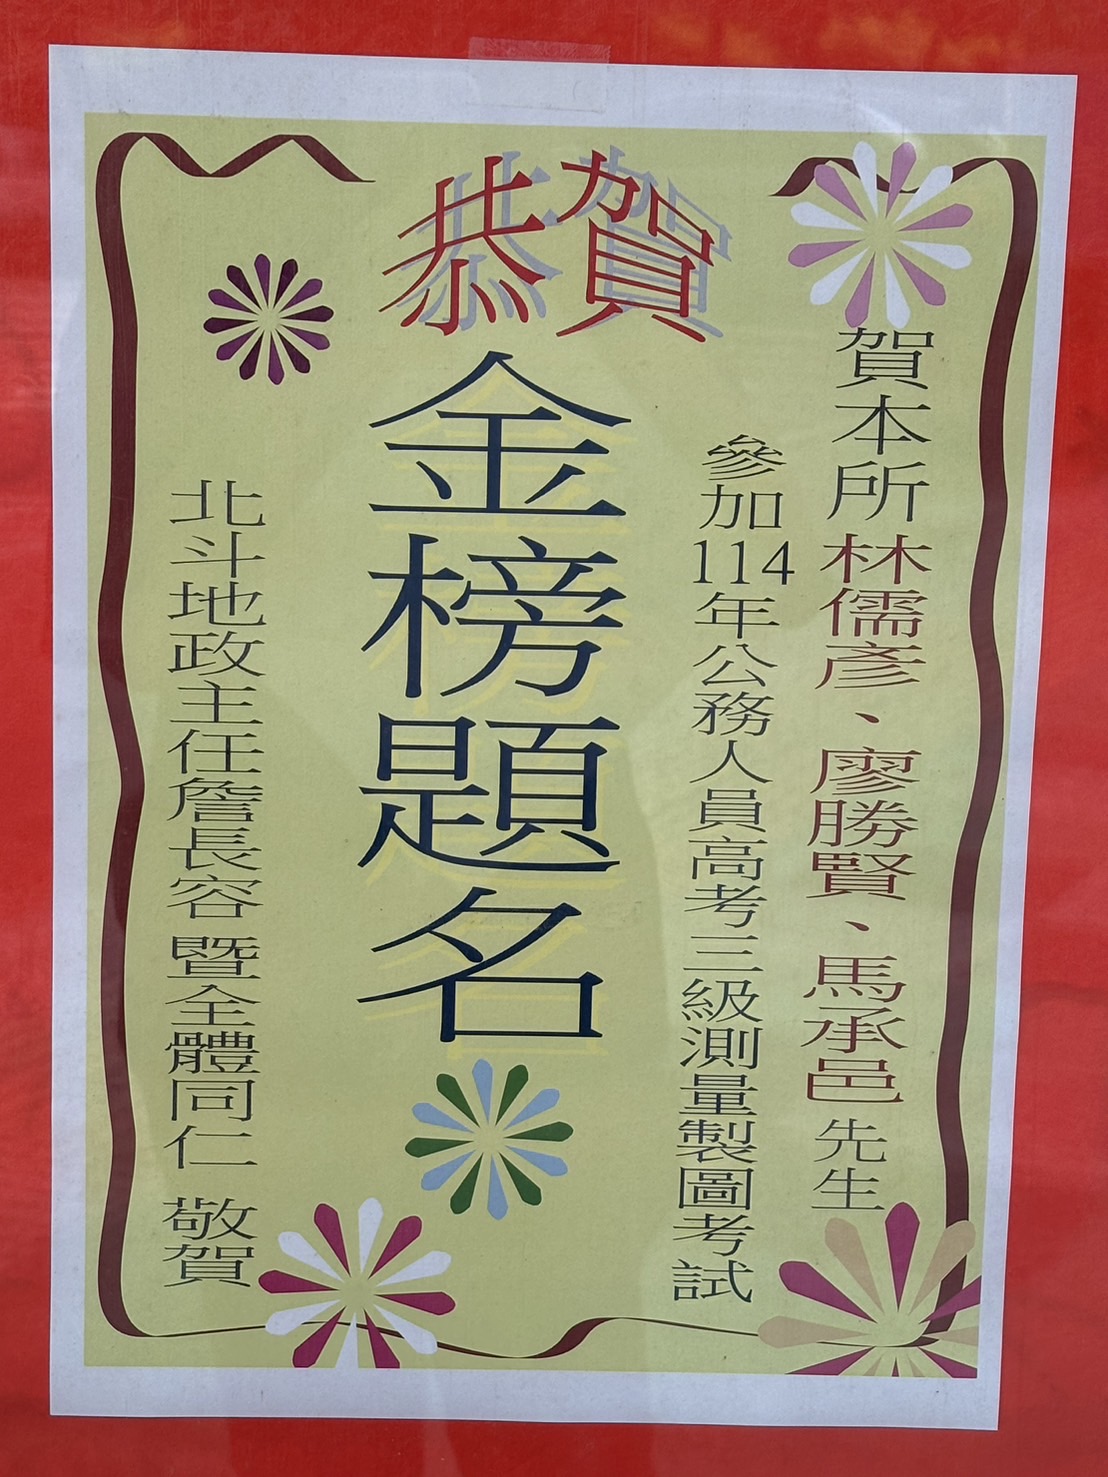 恭賀
賀本所林儒彥、廖勝賢、馬承邑先生
參加114年公務人員高考三級測量製圖考試
金榜題名
北斗地政主任詹長容暨全體同仁 敬賀